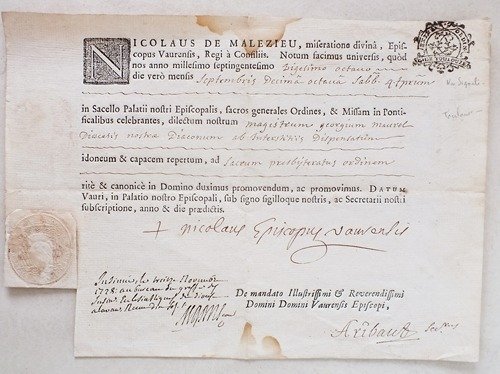 NICOLAUS DE MALEZIEU, miseratione divinâ, Epis-
copus Vaurensis, Regi à Consiliis. Notum facimus universis, quòd
nos anno millesimo septingentesimo Vigesimo octavo
die verò mensis Septembris Decimâ octavâ Sabb. 4 tprium
in Sacello Palatii nostri Episcopalis, sacros generales Ordines, & Missam in Ponti-
ficalibus celebrantes, dilectum nostrum magistrum georgium maurel
Diocesis nostræ Diaconum ab Interstitiis Dispensatum
idoneum & capacem repertum, ad Sacrum presbyteratus ordinem
ritè & canonicè in Domino duximus promovendum, ac promovimus. DATUM
Vauri, in Palatio nostro Episcopali, sub signo sigilloque nostris, ac Secretarii nostri
subscriptione, anno & die prædictis.
+ nicolaus Episcopus vaurensis
1728
De mandato Illustrissimi & Reverendissimi
Domini Domini Vaurensis Episcopi,
Aribaut